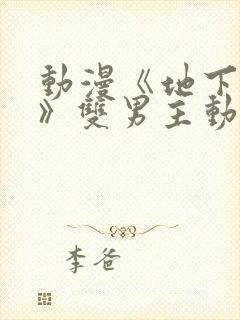 動漫《地下
》雙男主動
李爸